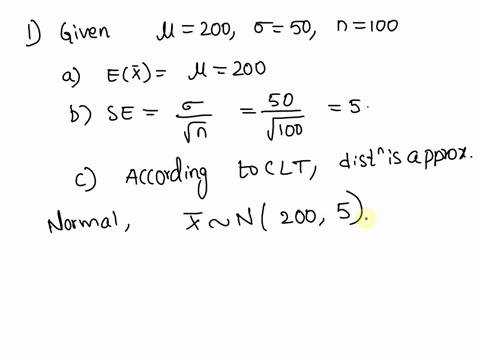 1) Given μ = 200, σ = 50, n = 100
a) E(x̄) = μ = 200
b) SE = σ/√n = 50/√100 = 5.
c) According to CLT, distⁿ is approx.
Normal, x̄ ~ N(200, 5).